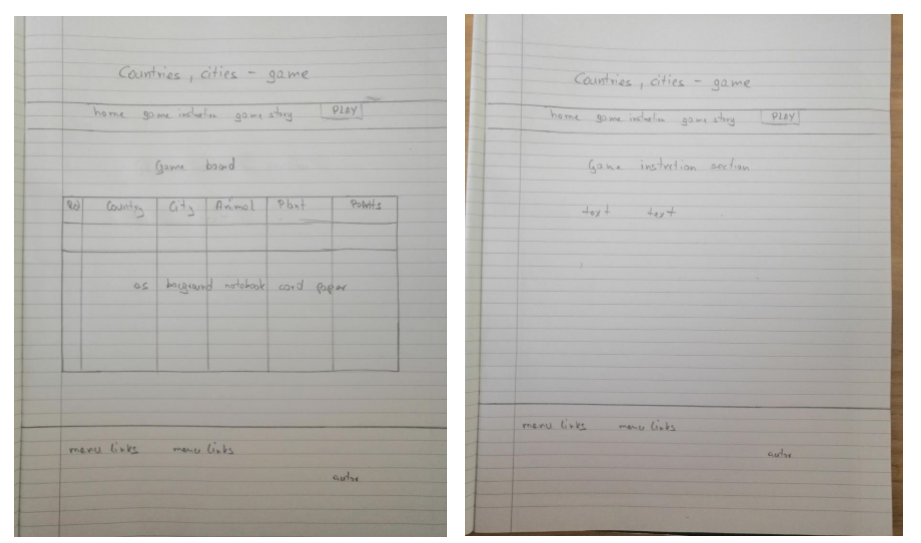 Countries, cities - game
home game instruction game story PLAY
Game board
Country City Animal Plant Points
as bacground notebook card paper
menu links menu links
autor
Countries, cities - game
home game instruction game story PLAY
Game instrction section
text text
menu links menu links
autor